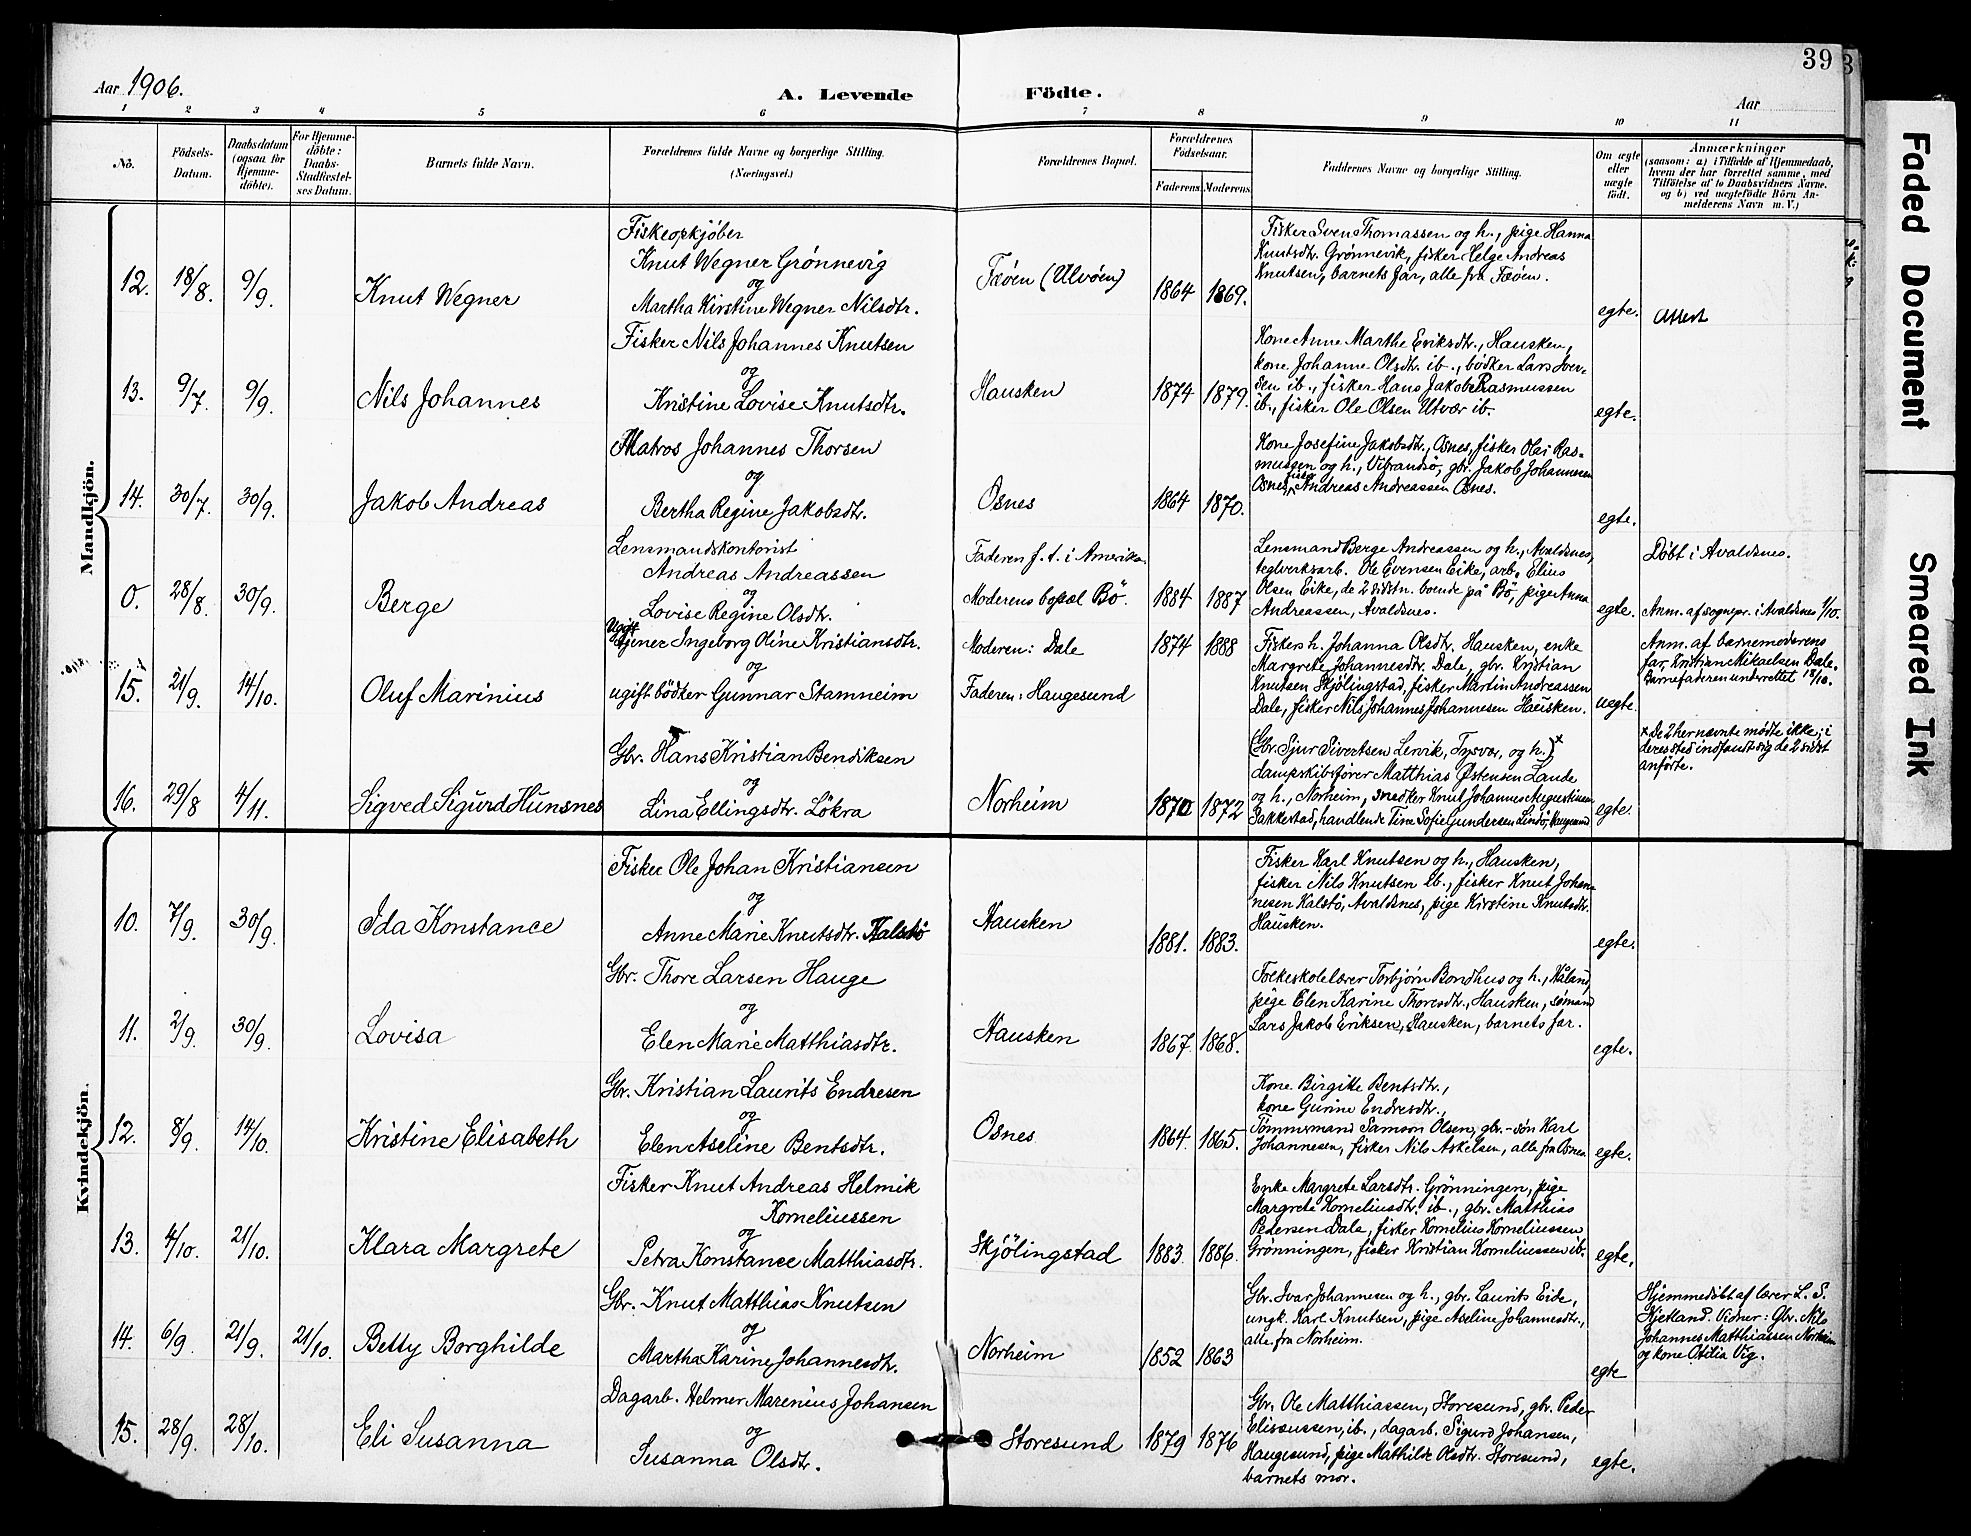 39
Aar 1906.
A. Levende Födte.
Aar
1 2 3 4 5 6 7 8 9 10 11
No.
Födsels-Datum.
Daabsdatum (ogsaa for Hjemme-döbte).
For Hjemme-döbte: Daabs-Stadfæstel-ses Datum.
Barnets fulde Navn.
Forældrenes fulde Navne og borgerlige Stilling.
(Næringsvei.)
Forældrenes Bopæl.
Forældrenes Födselsaar.
Faderens. Moderens.
Faddernes Navne og borgerlige Stilling.
Om ægte eller uægte födt.
Anmærkninger
(saasom: a) i Tilfælde af Hjemmedaab,
hvem der har forrettet samme, med
Tilföielse af to Daabsvidners Navne,
og b) ved uægtefödte Börn An-
melderens Navn m. V.)
Mandkjön.
12. 18/8. 9/9. Knut Wegner
Fiskeopkjøber
Knut Wegner Grønnevig
og
Martha Kirstine Wegner Nilsdtr.
Fæøen (Ulvöen) 1864 1869.
Fisker Sven Thomassen og h., pige Hanna
Knutsdt. Grönnevik, fisker Helge Andreas
Knutsen, barnets far, alle fra Fæöen.
egte. Attest
13. 9/7. 9/9. Nils Johannes
Fisker Nils Johannes Knutsen
og
Kristine Lovise Knutsdtr.
Hausken 1874 1879.
Kone Anne Marthe Eriksdtr., Hausken,
kone Johanne Olsdtr. ib., bødker Lars Iver-
sen ib., fisker Hans Jakob Rasmussen
ib., fisker Ole Olsen Utvær ib.
egte.
14. 30/7. 30/9. Jakob Andreas
Matros Johannes Thorsen
og
Bertha Regine Jakobsdtr.
Osnes 1864 1870.
Kone Josefine Jakobsdtr., Osnes, fisker Olai Ras-
mussen og h., Vibrandsö, gbr. Jakob Johannesen
Osnes, fisker Andreas Andreassen Osnes.
egte.
0. 28/8. 30/9. Berge
Lensmandskontorist
Andreas Andreassen
og
Lovise Regine Olsdtr.
Faderen f. t. i Amerika.
Moderens bopæl Bö. 1884 1887
Lensmand Berge Andreassen og h., Avaldsnes,
teglverksarb. Ole Evensen Eike, arb. Elius
Olsen Eike, de 2 sidstn. boende på Bö, pige Anna
Andreassen, Avaldsnes.
egte.
Döbt i Avaldsnes.
Anm. af sognepr. i Avaldsnes 1/10.
15. 21/9. 14/10. Oluf Marinius
Ugift
tjener Ingeborg Oline Kristiansdtr.
og
ugift bödker Gunnar Stamneim
Moderen: Dale
Faderen: Haugesund
1874 1888
Fiskers h. Johanna Olsdt. Hausken, enke
Margrete Johannesdtr. Dale, gbr. Kristian
Knutsen Skjölingstad, fisker Martin Andreassen
Dale, fisker Nils Johannes Johannesen Hausken.
uegte.
Anm. af barnemoderens
far, Kristian Mikaelsen Dale.
Barnefaderen underrettet 18/10.
16. 29/8 4/11. Sigved Sigurd Hunsnes
Gbr. Hans Kristian Bendiksen
og
Lina Ellingsdtr. Lökra
Norheim 1870 1872
(Gbr. Sjur Sivertsen Lervik, Tysvær, og h.)×
dampskibsfører Matthias Østensen Lande
og h., Norheim, snedker Knut Johannes Augustinsen
Bakkestad, handlende Tine Sofie Gundersen Lindö, Haugesund
egte.
× De 2 her nævnte mödte ikke; i
deres sted indfandt sig de 2 sidst
anförte.
Kvindekjön.
10. 7/9. 30/9. Ida Konstance
Fisker Ole Johan Kristiansen
og
Anne Marie Knutsdtr. Kalstö
Hausken 1881. 1883.
Fisker Karl Knutsen og h., Hausken,
fisker Nils Knutsen ib., fisker Knut Johan-
nesen Kalstö, Avaldsnes, pige Kirstine Knutsdtr.
Hausken.
egte.
11. 2/9. 30/9. Lovisa
Gbr. Thore Larsen Hauge
og
Elen Marie Matthiasdtr.
Hausken 1867. 1868.
Folkeskolelærer Torbjørn Bondhus og h., Kåland,
pige Elen Karine Thoresdtr., Hausken, sømand
Lars Jakob Eriksen, Hausken, barnets far.
egte.
12. 8/9. 14/10. Kristine Elisabeth
Gbr. Kristian Laurits Endresen
og
Elen Aseline Bentsdtr.
Osnes 1864. 1865.
Kone Birgitte Bentsdtr.,
kone Gurine Endresdtr.,
Tömmermand Samson Olsen, gbr.-sön Karl
Johannesen, fisker Nils Askelsen, alle fra Osnes.
egte.
13. 4/10. 21/10. Klara Margrete
Fisker Knut Andreas Helmik
Korneliussen
og
Petra Konstance Matthiasdtr.
Skjölingstad 1883. 1886.
Enke Margrete Larsdtr. Grönningen, pige
Margrete Korneliusdtr. ib., gbr. Matthias
Pedersen Dale, fisker Kornelius Korneliussen
Grönningen, fisker Kristian Korneliussen ib.
egte.
14. 6/9. 21/9. 21/10. Betty Borghilde
Gbr. Knut Matthias Knutsen
og
Martha Karine Johannesdtr.
Norheim 1852 1863
Gbr. Ivar Johannesen og h., gbr. Laurits Eide,
ungk. Karl Knutsen, pige Aseline Johannesdtr.,
alle fra Norheim.
egte
Hjemmedöbt af lærer L. S.
Kjetland. Vidner: Gbr. Nils
Johannes Matthiassen Norheim
og kone Otilia Vig.
15. 28/9. 28/10. Eli Susanna
Dagarb. Helmer Marenius Johansen
og
Susanna Olsdtr.
Storesund 1879 1876
Gbr. Ole Matthiassen, Storesund, gbr. Peder
Eliassussen, ib., dagarb. Sigurd Johansen,
Haugesund, pige Mathilde Olsdtr. Storesund,
barnets mor.
egte.
Faded Document
Smeared Ink